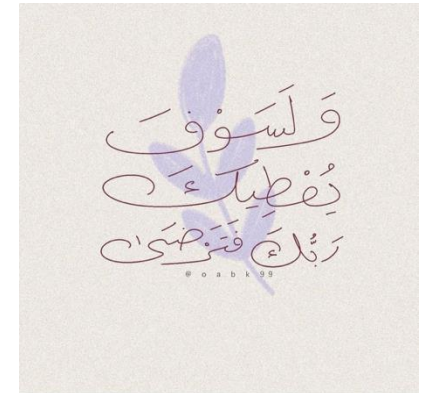 وَلَسَوْفَ
يُعْطِيكَ
رَبُّكَ فَتَرْضَىٰ
@oabk99